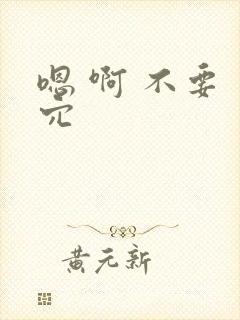 嗯啊不要
穴
黄元新